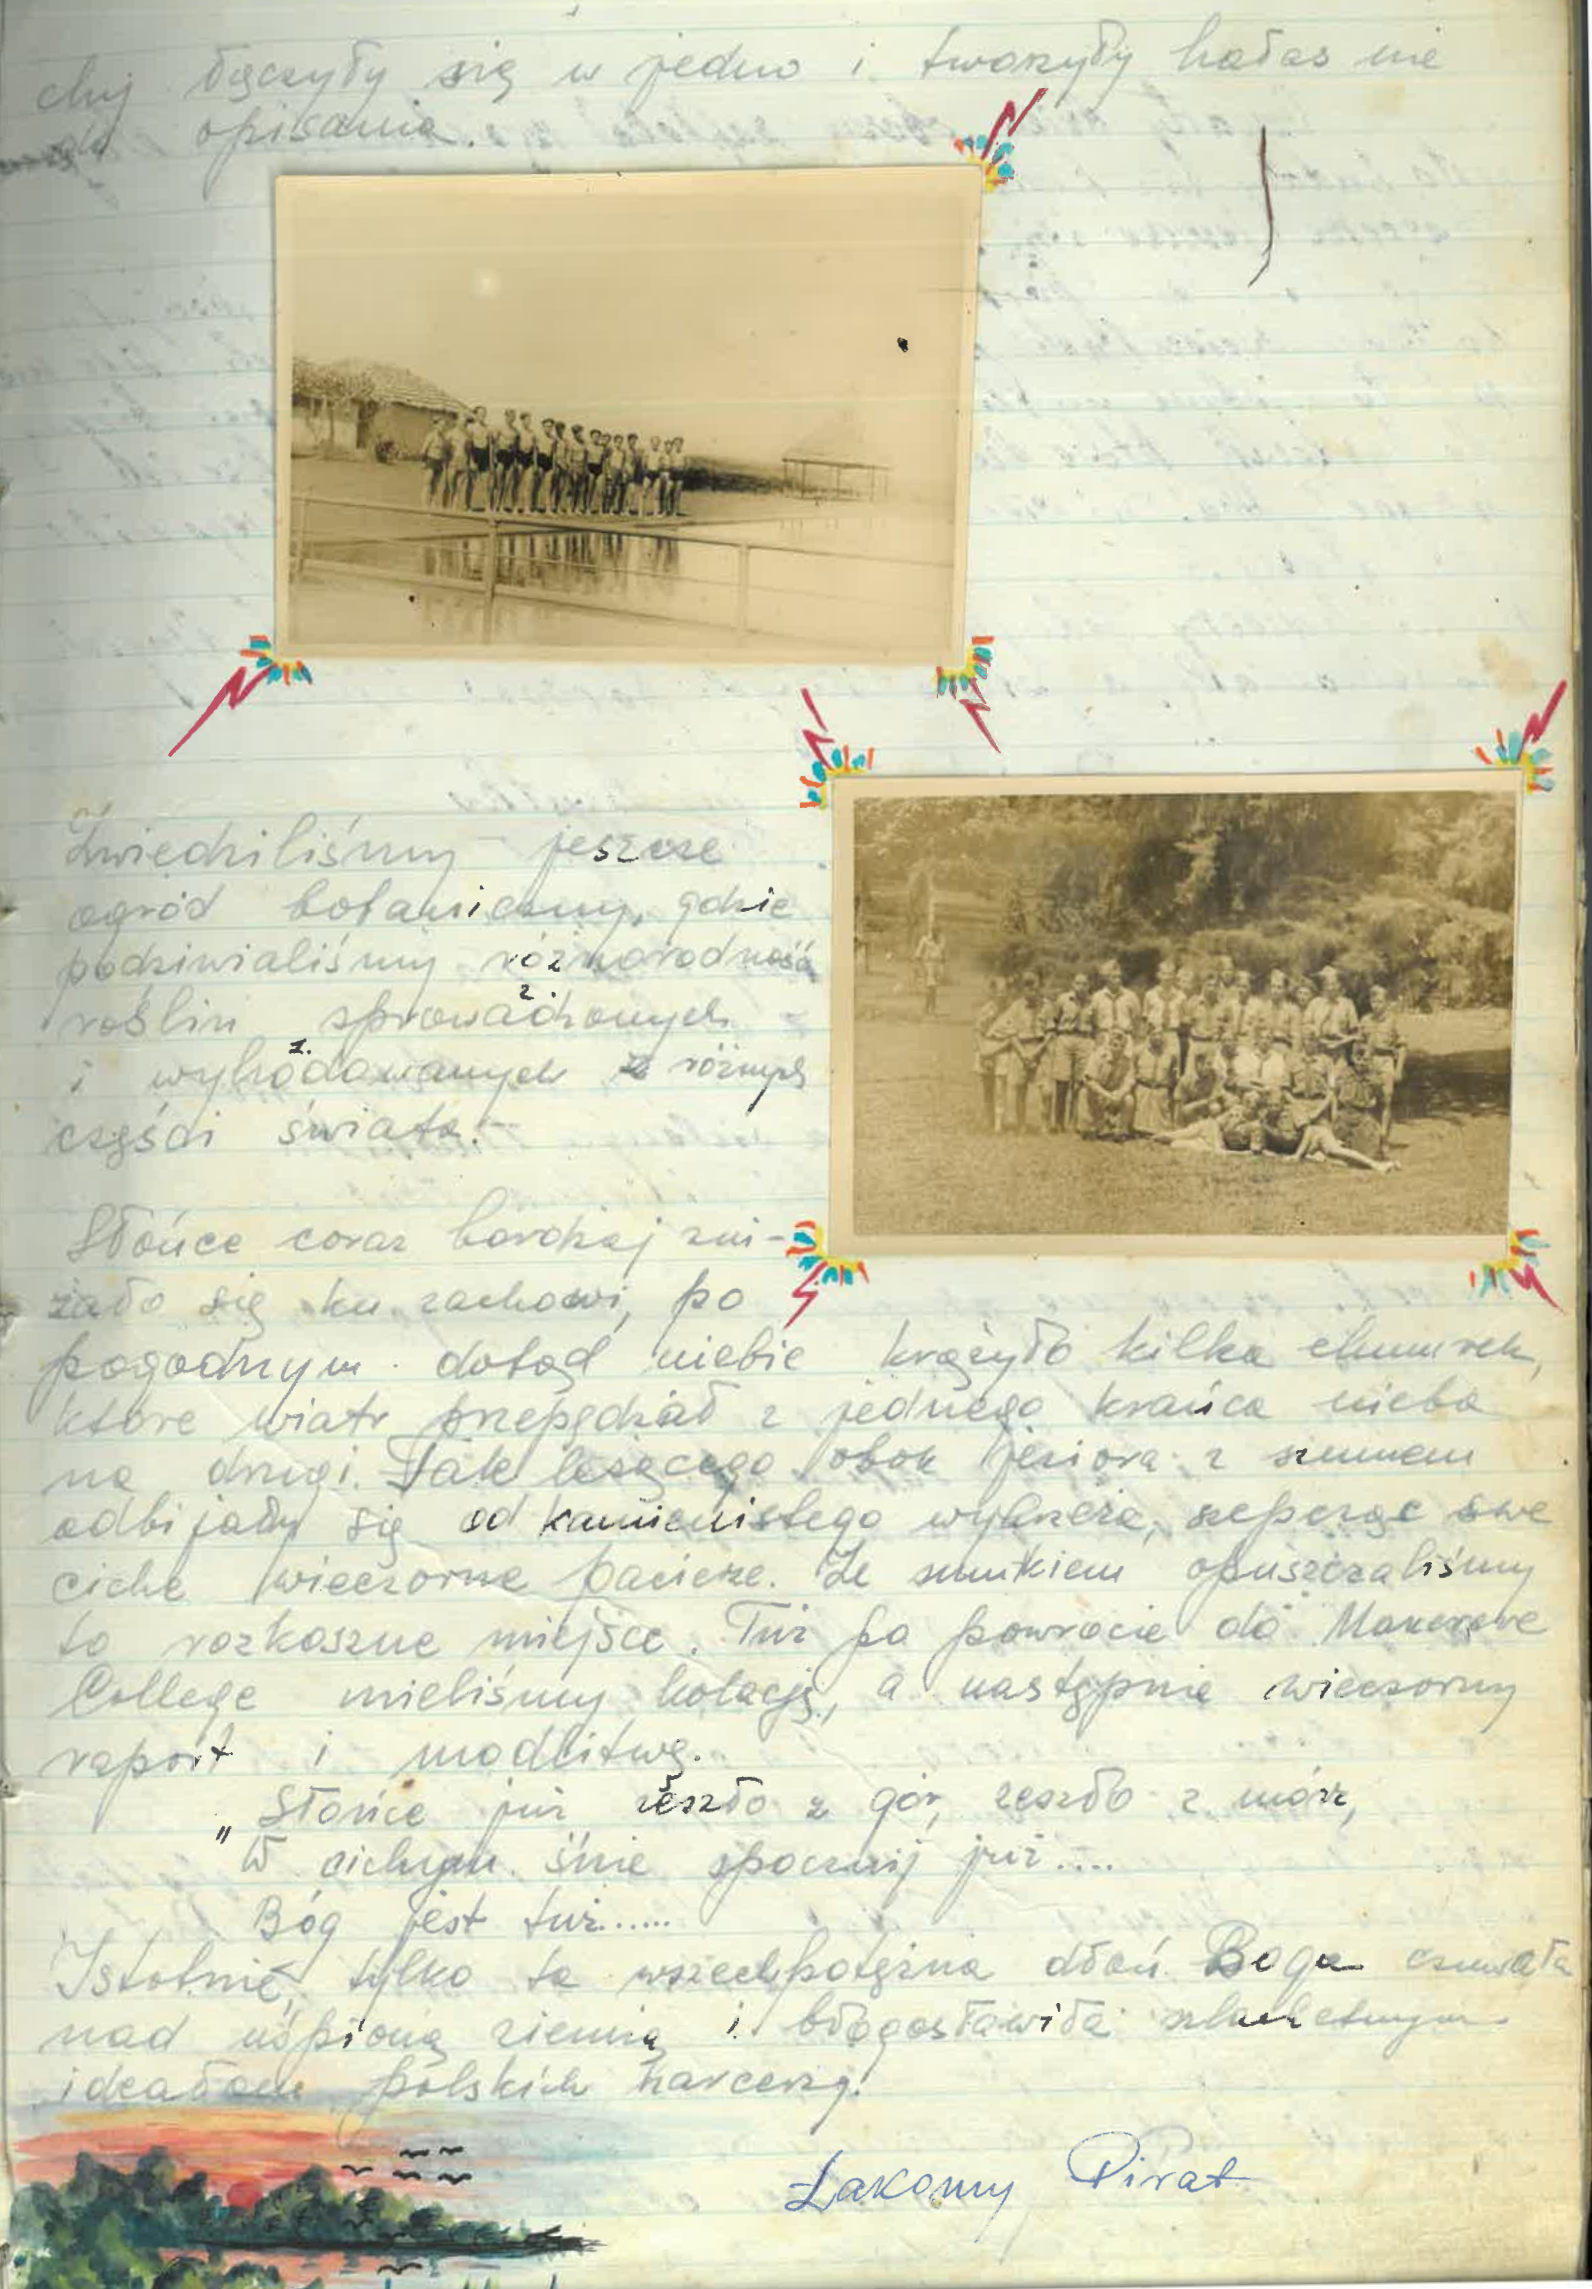 chy łączyły się w jedno i tworzyły hałas nie
do opisania.
Zwiedziliśmy jeszcze
ogród botaniczny, gdzie
podziwialiśmy różnorodność
roślin sprowadzonych
i wyhodowanych z różnych
części świata.
Słońce coraz bardziej zni-
żało się ku zachowi, po
pogodnym dotąd niebie krążyło kilka chmurek,
które wiatr przepędzał z jednego krańca nieba
na drugi. Fale leżącego obok jeziora z szumem
odbijały się od kamienistego wybrzeża, szepcząc swe
ciche wieczorne pacierze. Ze smutkiem opuszczaliśmy
to rozkoszne miejsce. Tuż po powrocie do Makerere
College mieliśmy kolację, a następnie wieczorny
raport i modlitwę.
„Słońce już zeszło z gór, zeszło z mórz,
W cichym śnie spocznij już....
Bóg jest tuż......
Istotnie, tylko ta wszechpotężna dłoń Boga czuwała
nad uśpioną ziemią i błogosławiła szlachetnym
ideałom polskich harcerzy.
Łakomy Pirat